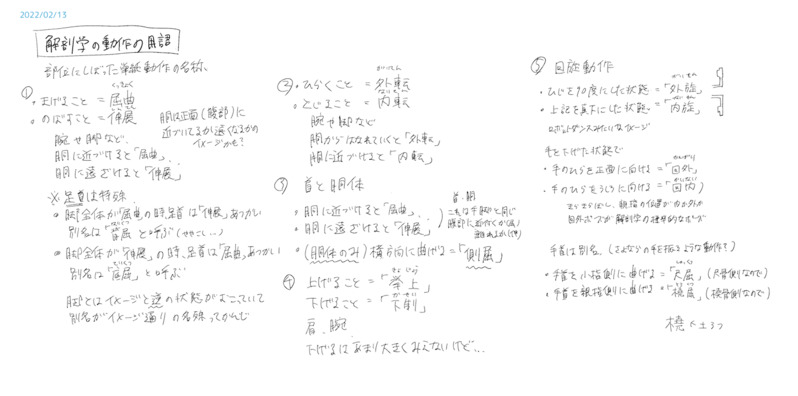 2022/02/13
解剖学の動作の用語
部位にしばった単純動作の名称。
①
くっきょく
・まげること = 屈曲
・のばすこと = 伸展
胴は正面(腹部)に
近づいてるか遠くなるかの
イメージかも?
腕や脚など、
胴に近づけると「屈曲」、
胴に遠ざけると「伸展」
※足首は特殊
・脚全体が屈曲の時、足首は「伸展」あつかい
別名は「背屈」と呼ぶ(ややこし…)
・脚全体が「伸展」の時、足首は「屈曲」あつかい
別名は「底屈」と呼ぶ
脚とはイメージと逆の状態がおこっていて
別名がイメージ通りの名称ってかんじ
②
がいてん
・ひらくこと = 外転
・とじること = 内転
腕や脚など
胴からはなれていくと「外転」
胴に近づけると「内転」
③ 首と胴体
・胴に近づけると「屈曲」、
・胴に遠ざけると「伸展」
首・胴
これは手脚と同じ
腹部に近づくか(屈)
離れるか(伸)
・(胴体のみ)横方向に曲げる =「側屈」
④
きょじょう
上げること =「挙上」
下げること =「下制」
肩、腕
下げるはあまり大きくみえないけど…
⑤ 回旋動作
がいせん
・ひじを90度にした状態 =「外旋」
・上記を真下にした状態。=「内旋」
ロボットダンスみたいなイメージ
手を下げた状態で
かいがい
・手のひらを正面に向ける =「回外」
かいない
・手のひらをうしろに向ける =「回内」
手首は別名。(さよならの手を振るような動作?)
・手首を小指側に曲げる =「尺屈」(尺骨側なので)
・手首を親指側に曲げる =「橈屈」(橈骨側なので)